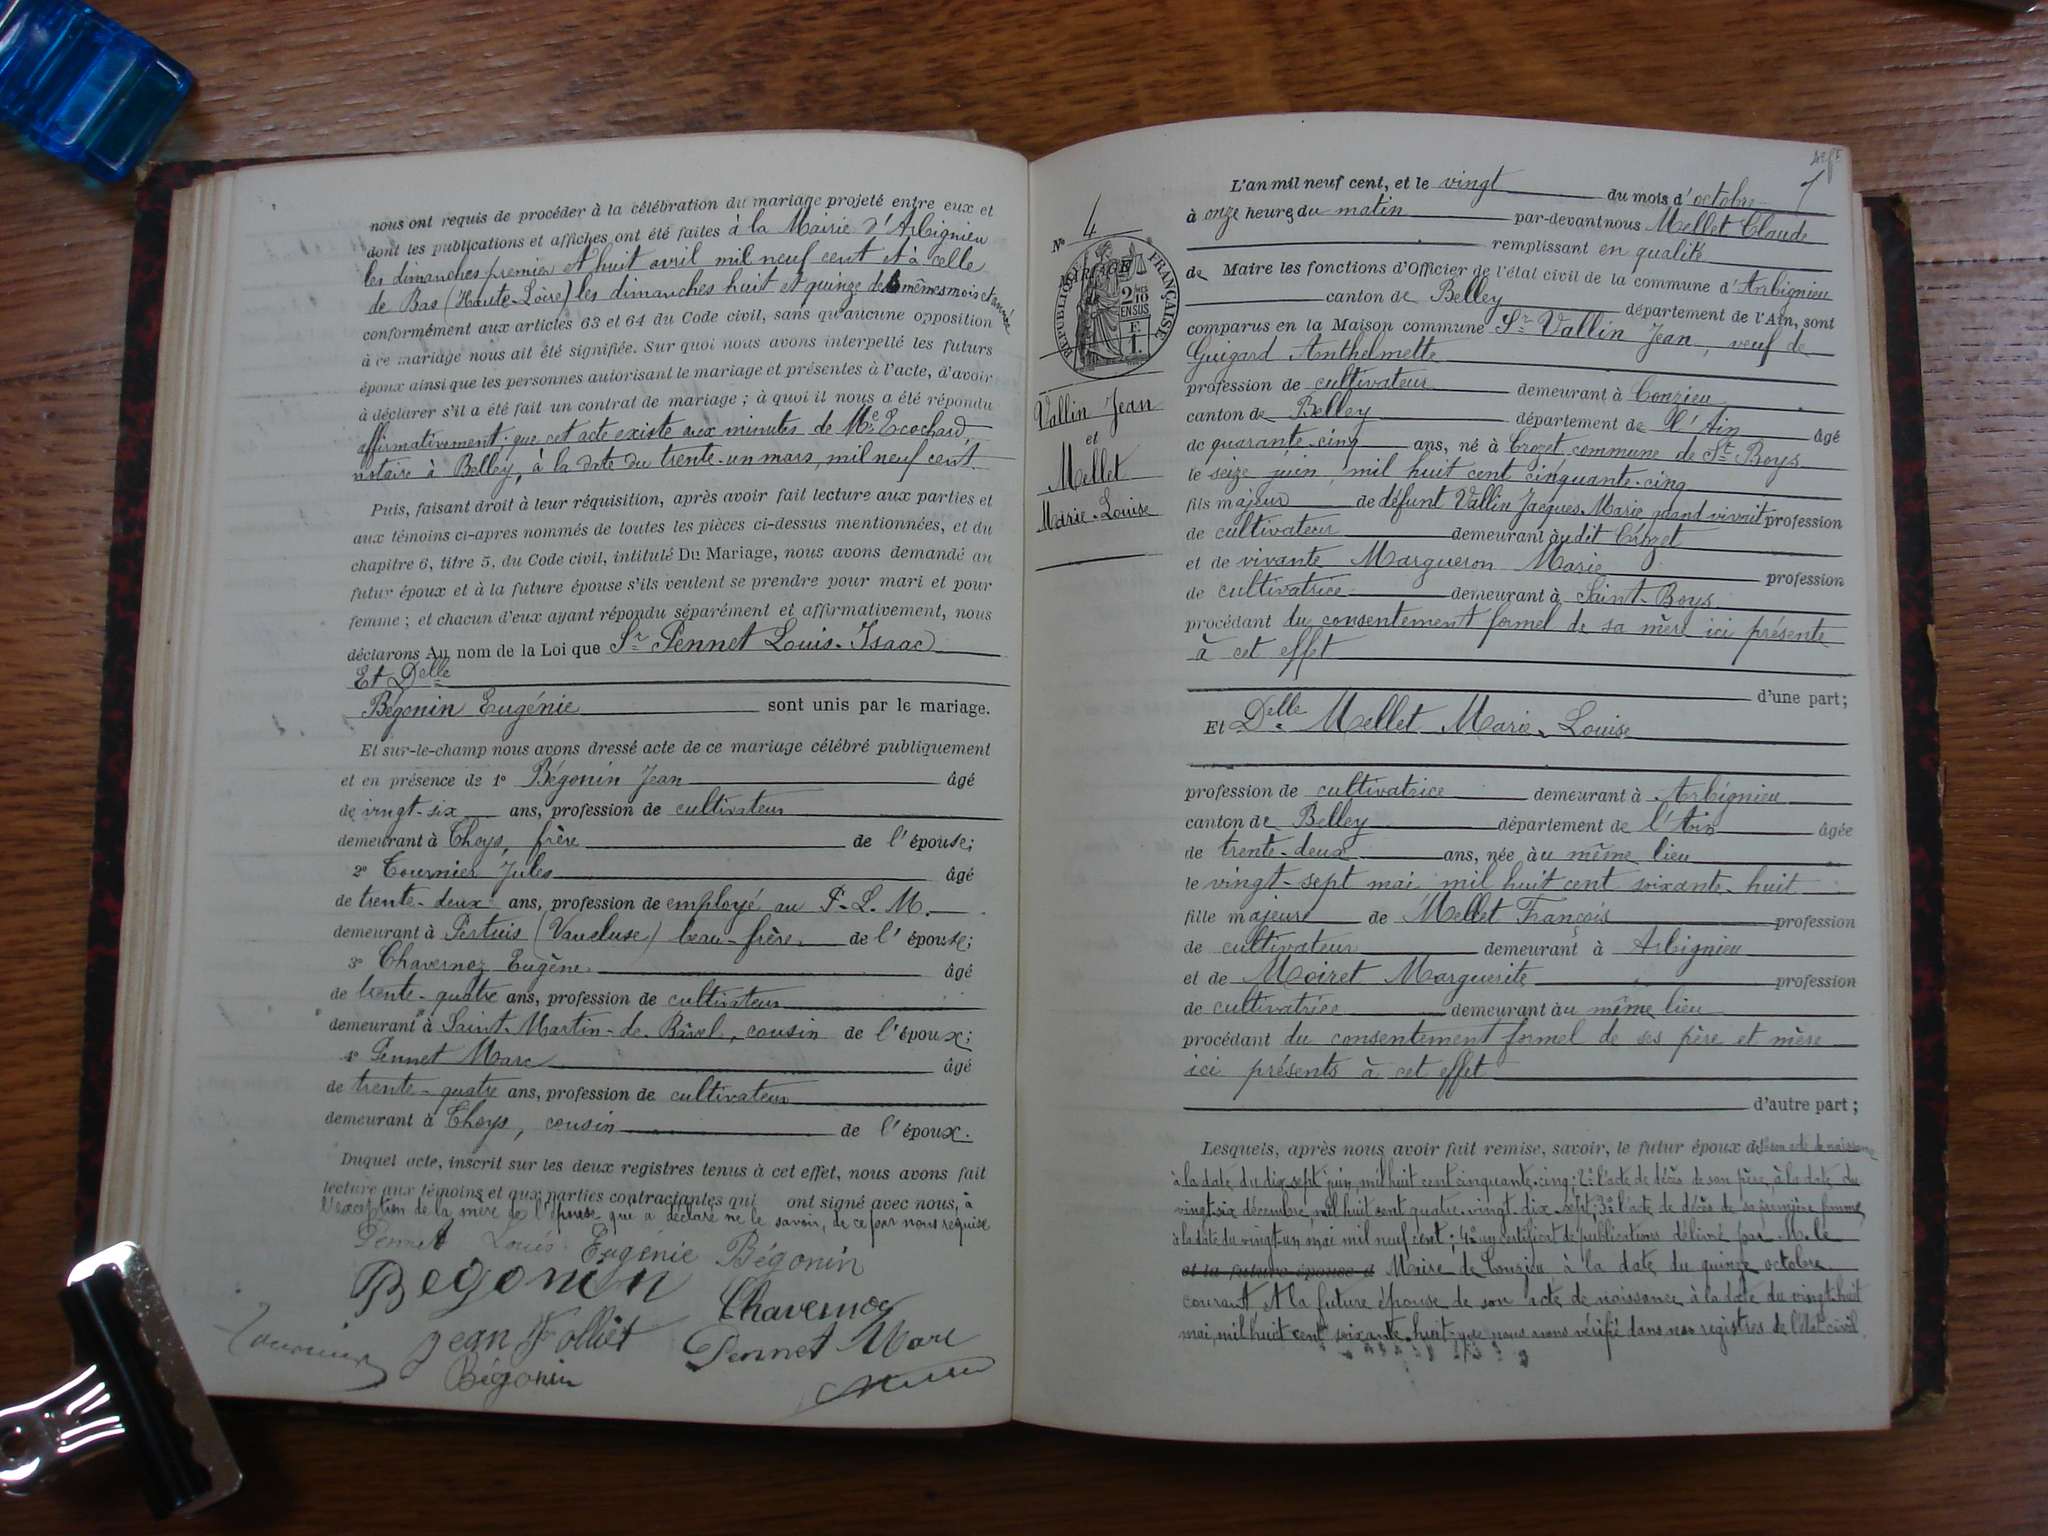 nous ont requis de procéder à la célébration du mariage projeté entre eux et
dont les publications et affiches ont été faites à la Mairie d'Arbignieu
les dimanches premier et huit avril mil neuf cent et à celle
de Bas (Haute-Loire) les dimanches huit et quinze des mêmes mois et année
conformément aux articles 63 et 64 du Code civil, sans qu'aucune opposition
à ce mariage nous ait été signifiée. Sur quoi nous avons interpellé les futurs
époux ainsi que les personnes autorisant le mariage et présentes à l'acte, d'avoir
à déclarer s'il a été fait un contrat de mariage ; à quoi il nous a été répondu
affirmativement. que cet acte existe aux minutes de Me Ecochard,
notaire à Belley, à la date du trente-un mars, mil neuf cent.
Puis, faisant droit à leur réquisition, après avoir fait lecture aux parties et
aux témoins ci-apres nommés de toutes les pièces ci-dessus mentionnées, et du
chapitre 6, titre 5, du Code civil, intitulé Du Mariage, nous avons demandé au
futur époux et à la future épouse s'ils veulent se prendre pour mari et pour
femme ; et chacun d'eux ayant répondu séparément et affirmativement, nous
déclarons Au nom de la Loi que Sr Pennet Louis-Isaac
Et Delle
Bégonin Eugénie sont unis par le mariage.
Et sur-le-champ nous avons dressé acte de ce mariage célébré publiquement
et en présence de 1° Bégonin Jean âgé
de vingt-six ans, profession de cultivateur
demeurant à Thoys, frère de l'épouse;
2° Tournier Jules âgé
de trente-deux ans, profession de employé au P.-L.M.
demeurant à Pertuis (Vaucluse) beau-frère de l'épouse;
3° Chavernoz Eugène âgé
de trente-quatre ans, profession de cultivateur
demeurant à Saint-Martin-de-Bavel, cousin de l'époux;
4° Pennet Marc âgé
de trente-quatre ans, profession de cultivateur
demeurant à Thoys, cousin de l'époux.
Duquel acte, inscrit sur les deux registres tenus à cet effet, nous avons fait
lecture aux témoins et aux parties contractantes qui ont signé avec nous, à
l'exception de la mère de l'épouse que a déclaré ne le savoir, de ce par nous requise
Pennet Louis Eugénie Bégonin
Begonin Chavernoz
Tournier Jean Jolliet Pennet Marc
Bégonin
7
N° 4
RÉPUBLIQUE FRANÇAISE
2/10 EN SUS
Vallin Jean
et
Mellet
Marie-Louise
L'an mil neuf cent, et le vingt du mois d'octobre
à onze heures du matin par-devant nous Mellet Claude
remplissant en qualité
de Maire les fonctions d'Officier de l'état civil de la commune d'Arbignieu
canton de Belley département de l'Ain, sont
comparus en la Maison commune Sr Vallin Jean, veuf de
Guigard Anthelmette
profession de cultivateur demeurant à Conzieu
canton de Belley département de l'Ain âgé
de quarante-cinq ans, né à Crozet commune de St Boys
le seize juin, mil huit cent cinquante-cinq
fils majeur de défunt Vallin Jacques-Marie quand vivait profession
de cultivateur demeurant audit Crozet
et de vivante Margueron Marie profession
de cultivatrice demeurant à Saint-Boys
procédant du consentement formel de sa mère ici présente
à cet effet
d'une part;
Et Delle Mellet Marie-Louise
profession de cultivatrice demeurant à Arbignieu
canton de Belley département de l'Ain âgée
de trente-deux ans, née au même lieu
le vingt-sept mai mil huit cent soixante-huit
fille majeure de Mellet François profession
de cultivateur demeurant à Arbignieu
et de Moiret Marguerite profession
de cultivatrice demeurant au même lieu
procédant du consentement formel de ses père et mère
ici présents à cet effet
d'autre part;
Lesquels, après nous avoir fait remise, savoir, le futur époux de 1° son acte de naissance
à la date du dix-sept juin, mil huit cent cinquante-cinq; 2° l'acte de décès de son père, à la date du
vingt-six décembre, mil huit cent quatre-vingt-dix-sept; 3° l'acte de décès de sa première femme
à la date du vingt-un mai mil neuf cent; 4° un certificat de publications délivré par M. le
et la future épouse d Maire de Conzieu à la date du quinze octobre
courant, Et la future épouse de son acte de naissance à la date du vingt-huit
mai, mil huit cent soixante-huit, que nous avons vérifié dans nos registres de l'état civil.